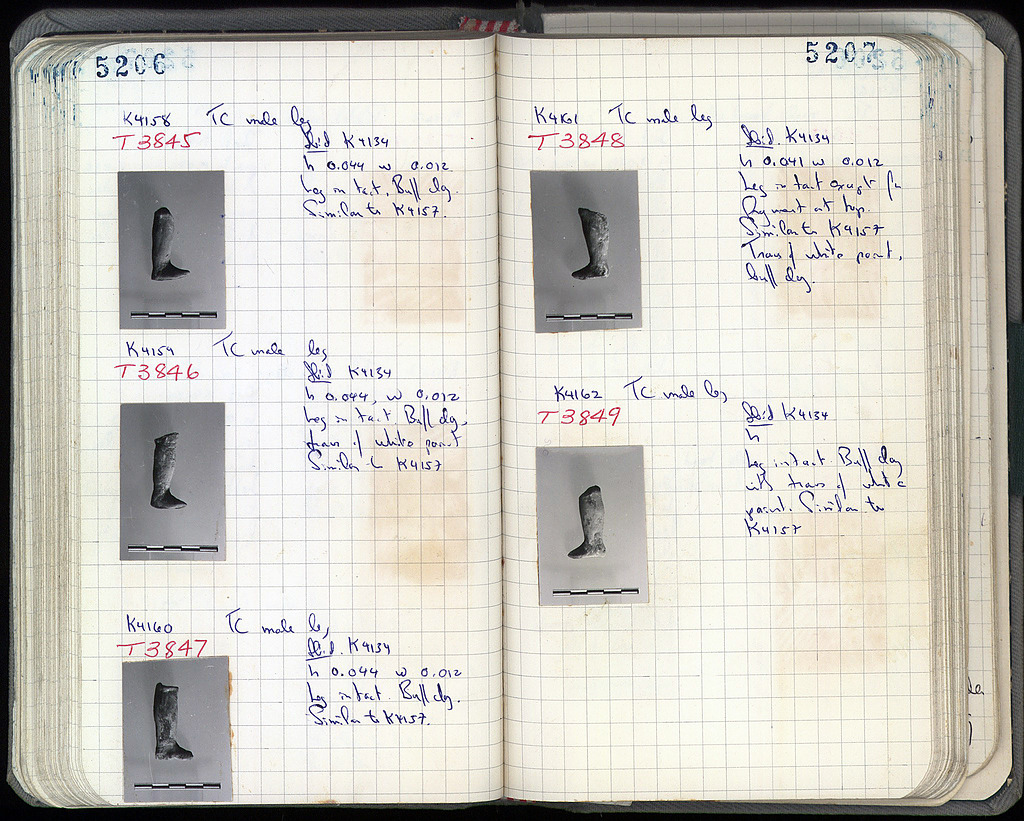 5206
K4158 TC male leg
T3845
Ibid K4134
h 0.044 w 0.012
Leg intact. Buff clay.
Similar to K4157.
K4159 TC male leg
T3846
Ibid K4134
h 0.044, w 0.012
Leg intact Buff clay,
traces of white paint
Similar to K4157
K4160 TC male leg
T3847
Ibid. K4134
h 0.044 w 0.012
Leg intact. Buff clay.
Similar to K4157.
5207
K4161 TC male leg
T3848
Ibid. K4134
h 0.041 w 0.012
Leg intact except for
fragment at top.
Similar to K4157
Traces of white paint,
buff clay.
K4162 TC male leg
T3849
Ibid K4134
h
Leg intact Buff clay
with traces of white
paint. Similar to
K4157